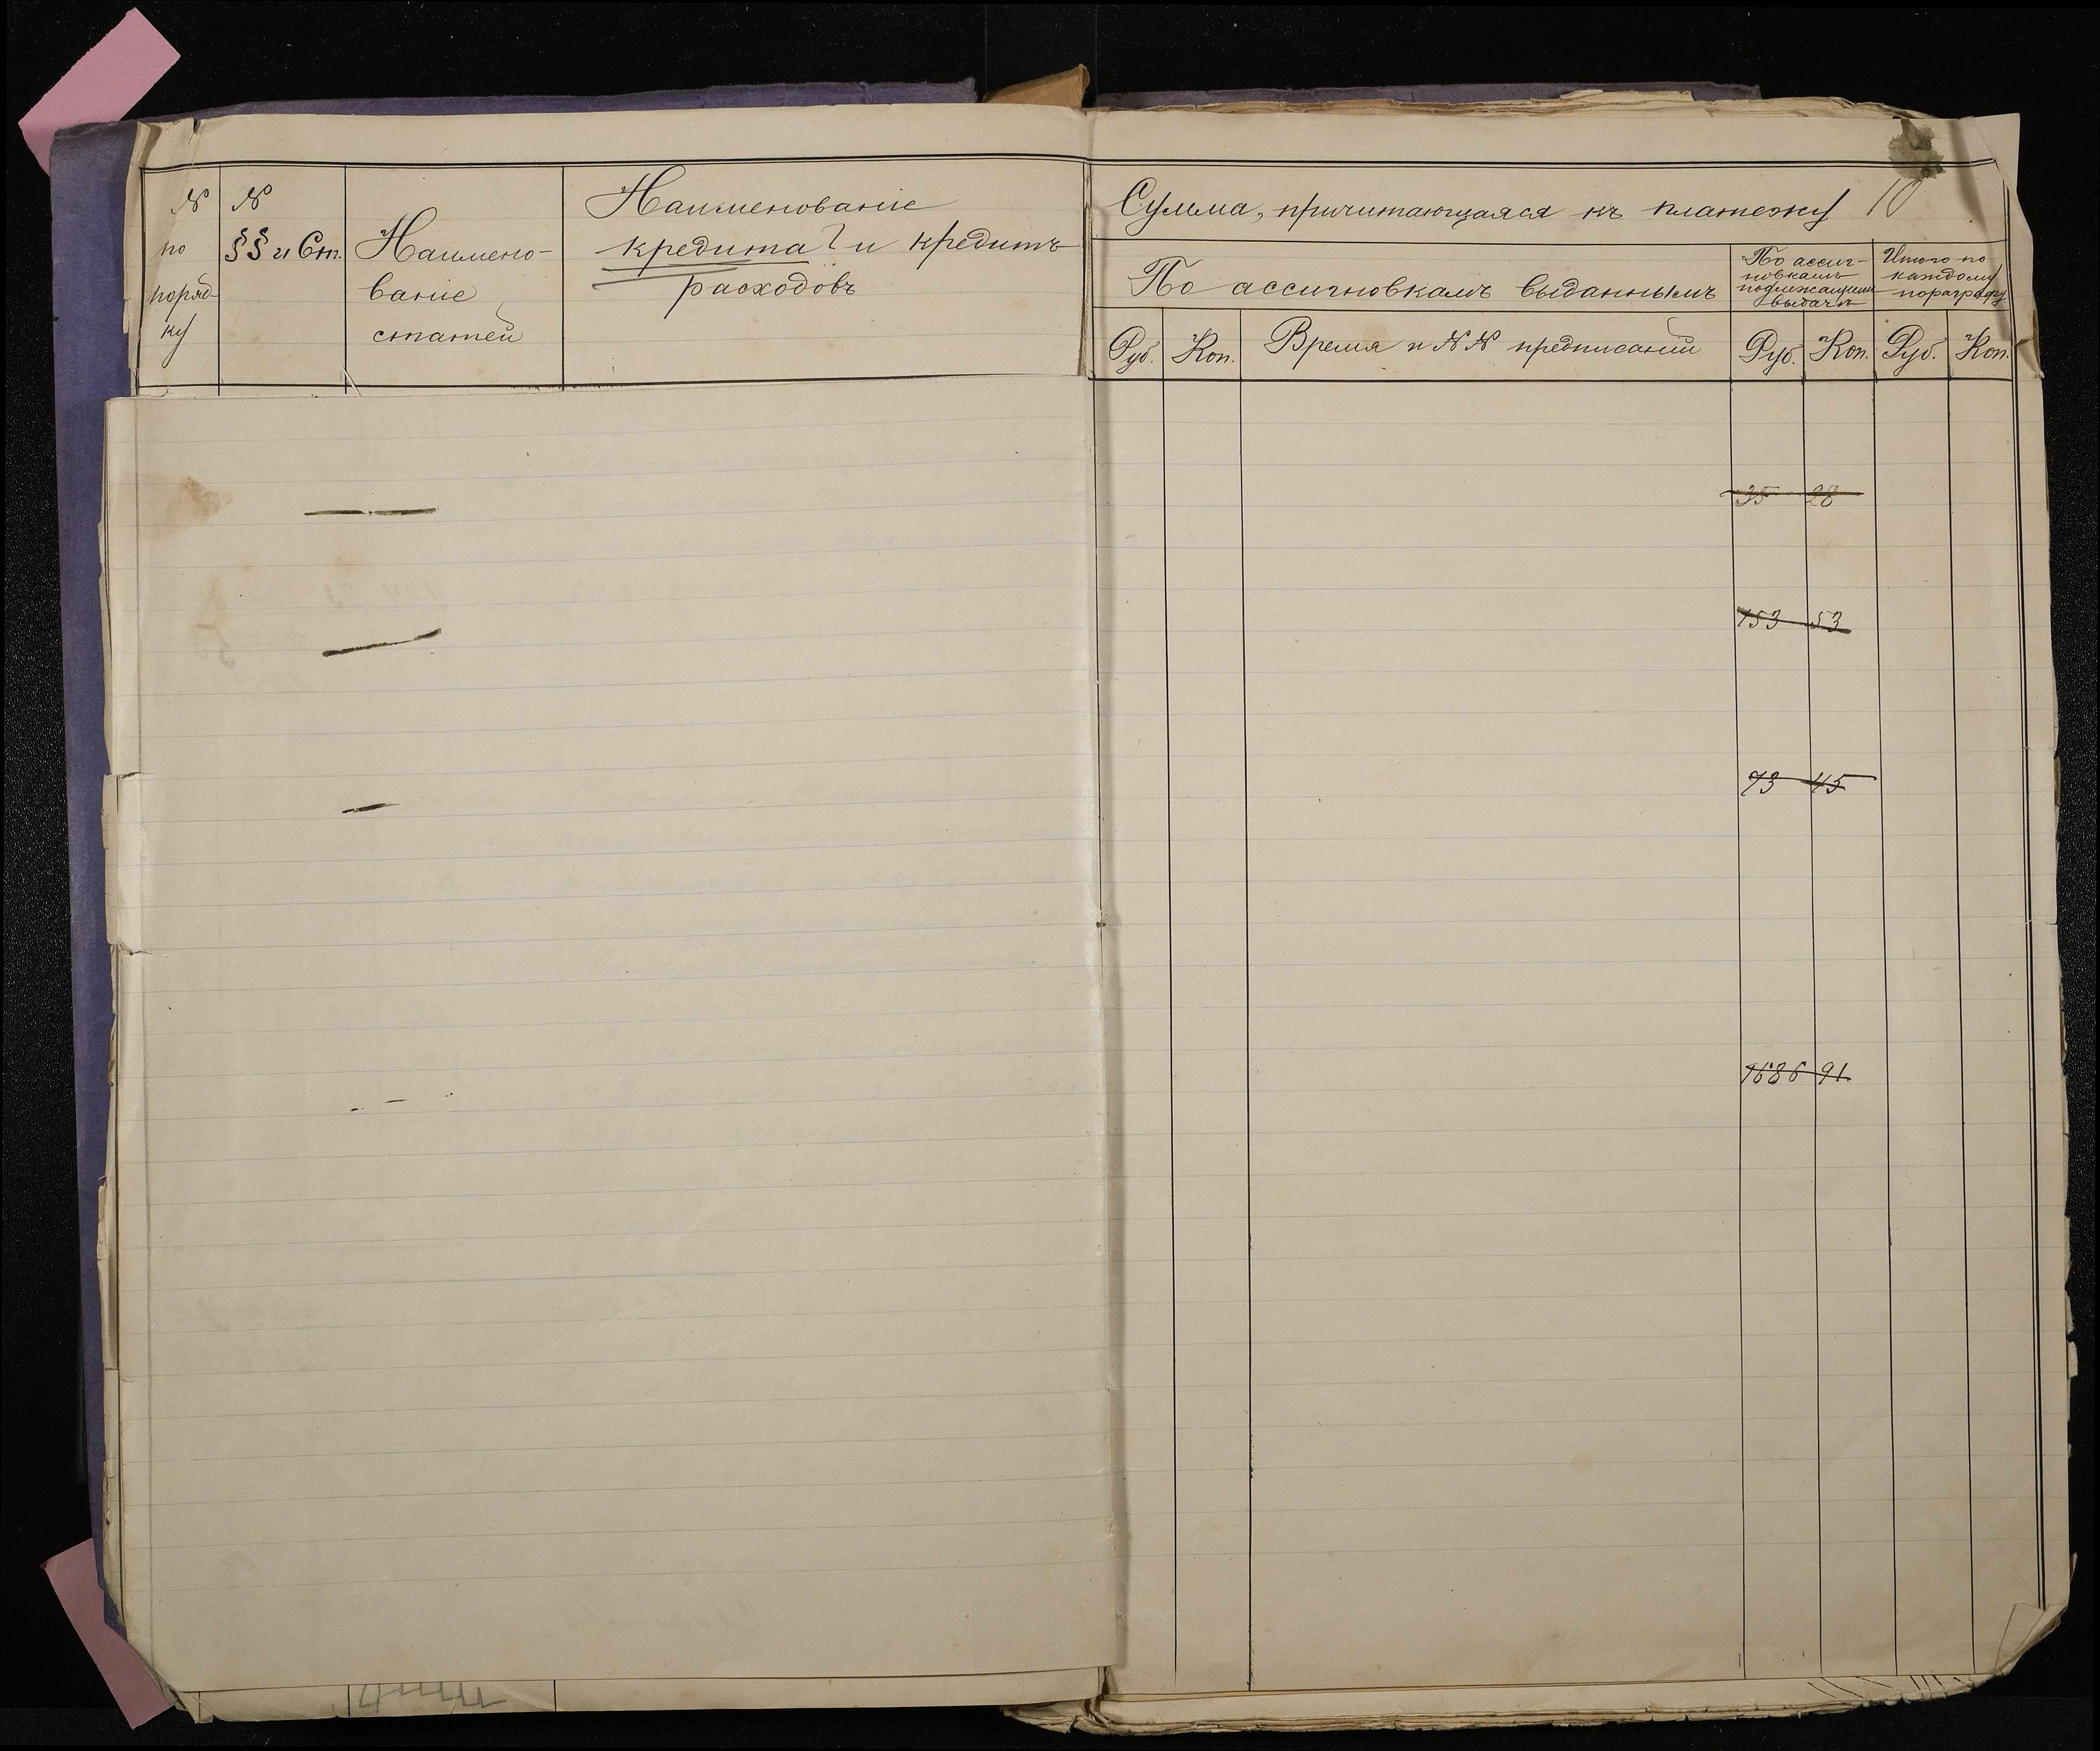 №
по
поряд-
ку
№
§§ и Ст.
Наимено-
ваніе
статей
Наименованіе
кредита и кредит
расходовъ
Сумма, причитающаяся къ платежу
10
По ассигновкамъ выданнымъ
По ассиг-
новкамъ
подлежащимъ
выдачѣ
Итого по
каждому
пораграфу
Руб. Коп. Время и №№ предписаній Руб. Коп. Руб. Коп.
35 28
153 53
73 45
1686 91